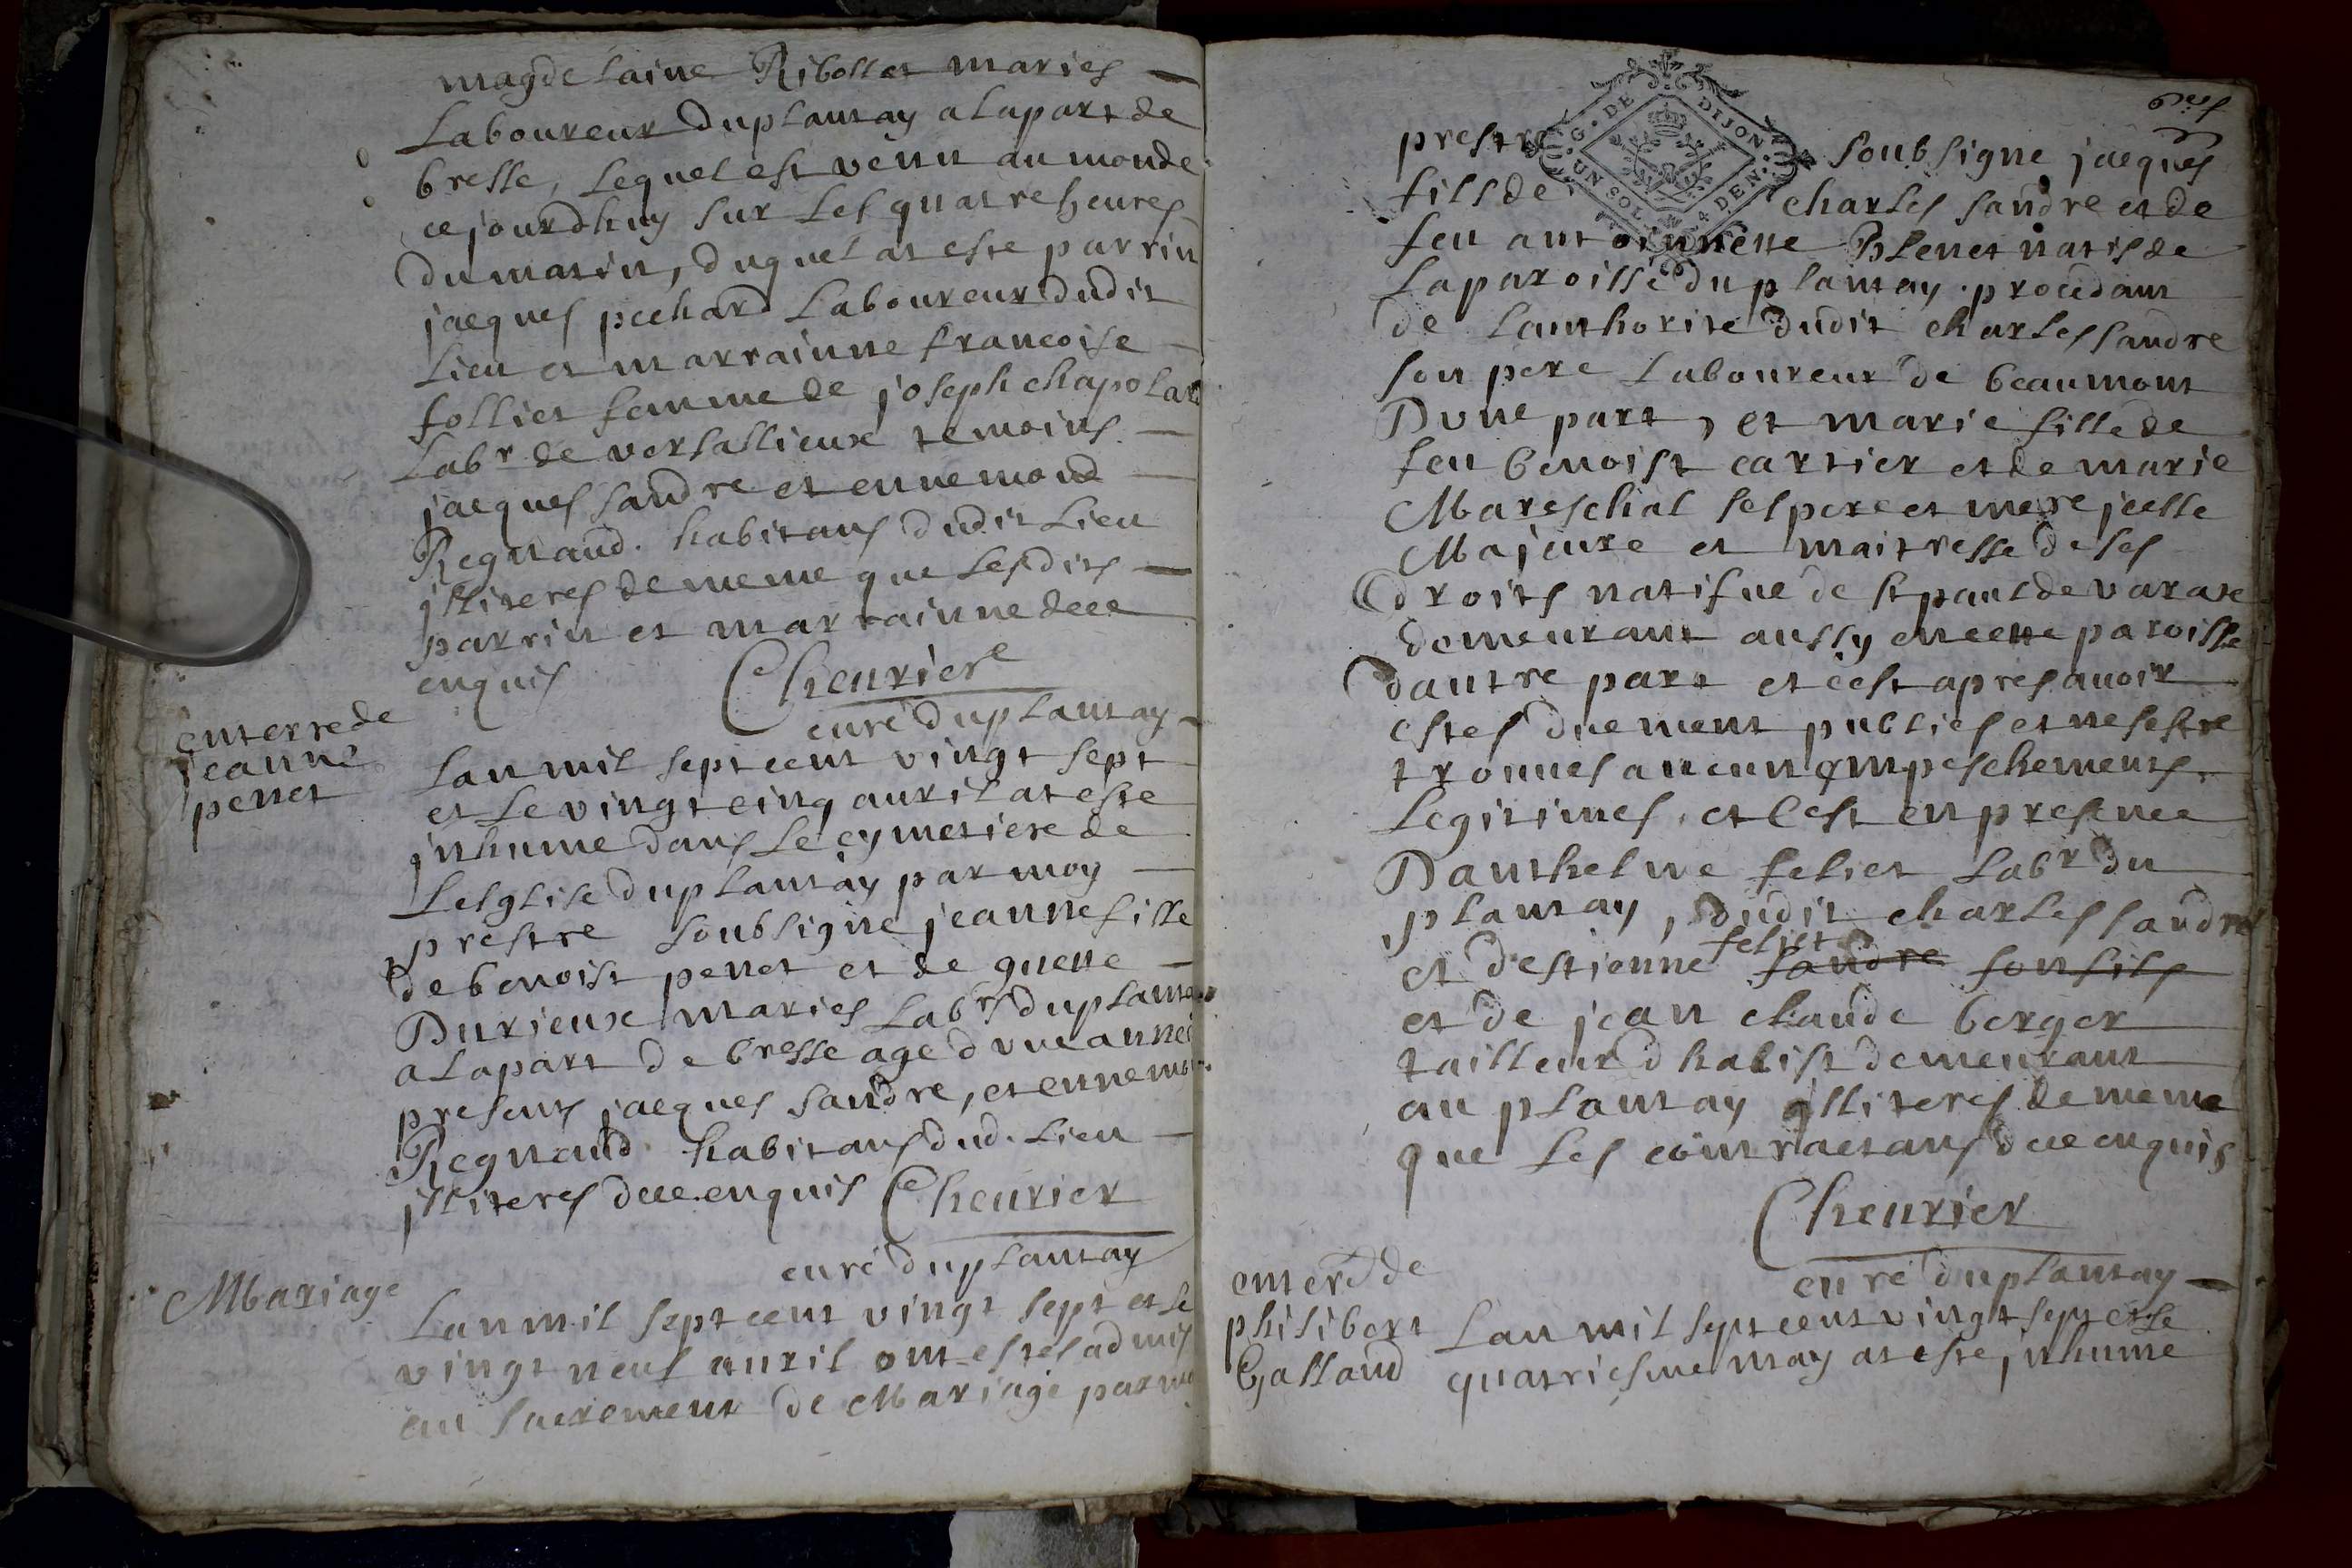 magdelaine Ribollet maries
Laboureur duplantay alapart de
bresse, Lequel est venu au monde
cejourdhuy sur Les quatre heures
du matin, duquel at este parrin
jacques pechard Laboureur dudit
Lieu et marrainne francoise
folliet femme de joseph chapolar
Labr de versallieux temoins
jacques sandre et ennemond
Regnaud. habitans dudit Lieu
jlliteres de meme que Lesdits
parrin et marrainne dece
enquis Cheurier
curé duplantay
enterre de
jeanne
penet
Lan mil sept cent vingt sept
et Le vingt cinq auril at este
jnhume dans Le cymetiere de
Lesglise duplantay par moy
prestre soubsigne jeanne fille
de benoist penet et de guette
Durieux maries Labrs duplantay
alapart de bresse age dune année
presents jacques sandre, et ennemon
Regnaud habitans dud. Lieu
jlliteres dece enquis Cheurier
curé duplantay
Mariage
Lan mil sept cent vingt sept et le
vingt neuf auril ont estes admis
au sacrement de Mariage par mo
G. DE DIJON
UN SOL 4 DEN.
prestre soubsigne jacques
fils de charles sandre et de
feu antoinnette Plenet natif de
La paroisse du plantay procedant
de Lauthorite dudit charles sandre
son pere Laboureur de beaumont
Dune part, et marie fille de
feu benoist cartier et de marie
Mareschal ses pere et mere jcelle
Majeure et maitresse de ses
droits natifue de st paul de varax
demeurant aussy en cette paroisse
dautre part et cest apres auoir
estes duement publies et ne sestre
trouues aucun empeschements
Legitimes, et cest en presence
Danthelme feliet Labr du
plantay, dudit charles sandre
feliet
et destienne sandre son fils
et de jean claude berger
tailleur dhabist demeurant
au plantay jlliteres de meme
que Les contractans dece enquis
Cheurier
curé duplantay
enterr de
philibert
Galland
Lan mil sept cent vingt sept et le
quatriesme may at este jnhume